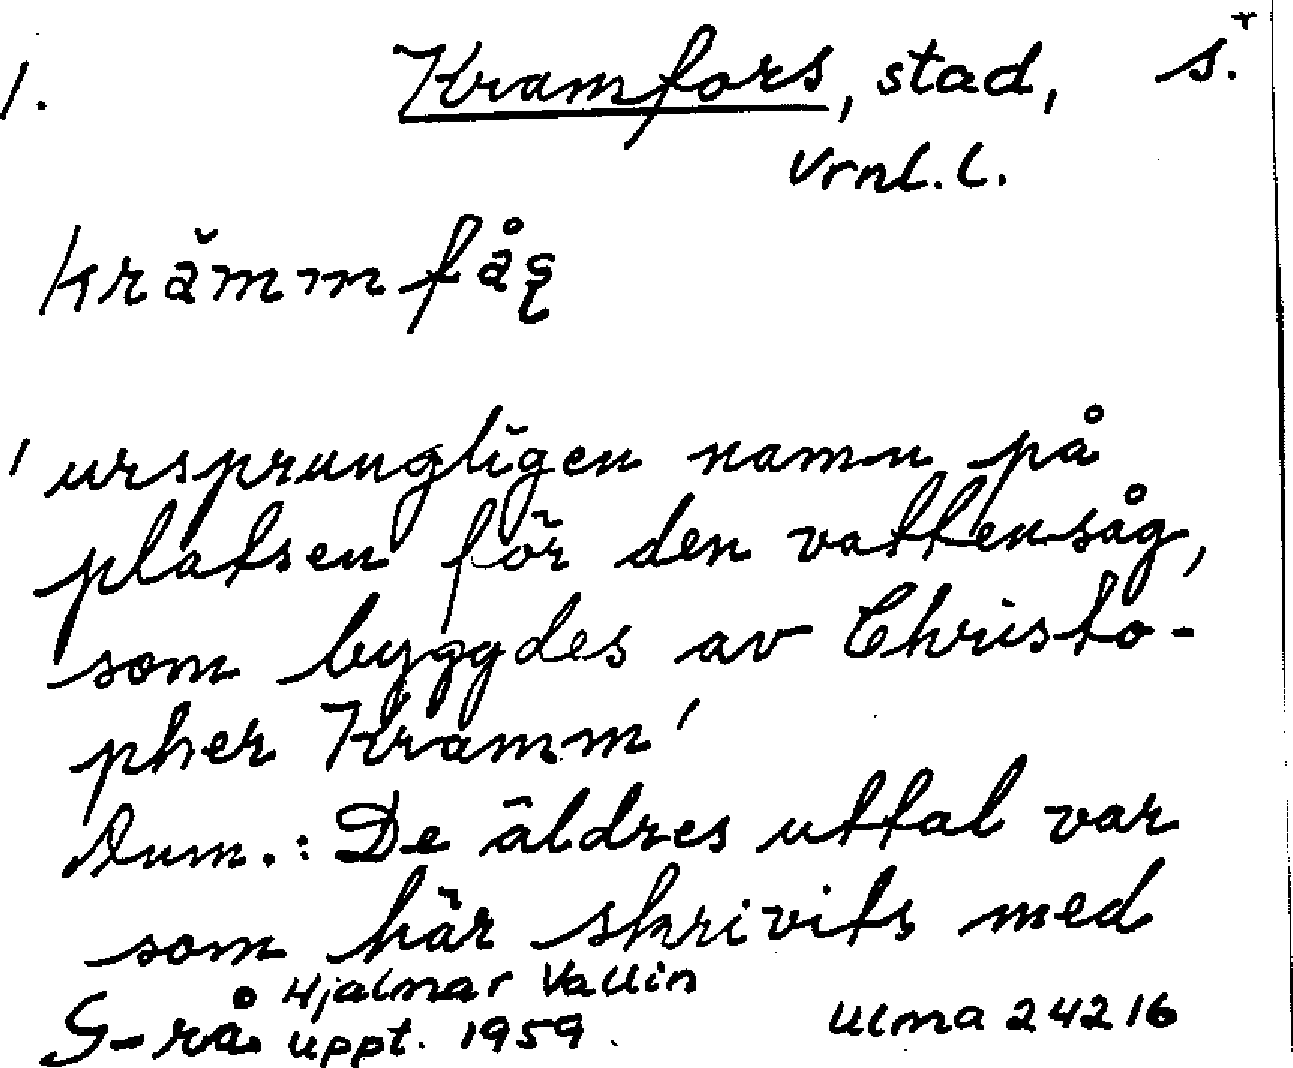 1. Kramfors, stad, s.r
Vrnl. l.
krămmfåş
'ursprungligen namn på
platsen för den vattensåg,
som byggdes av Christo-
pher Kramm'
Anm.: De äldres uttal var
som här skrivits med
G-rå. Hjalmar Vallin
uppt. 1959 Ulma 24216